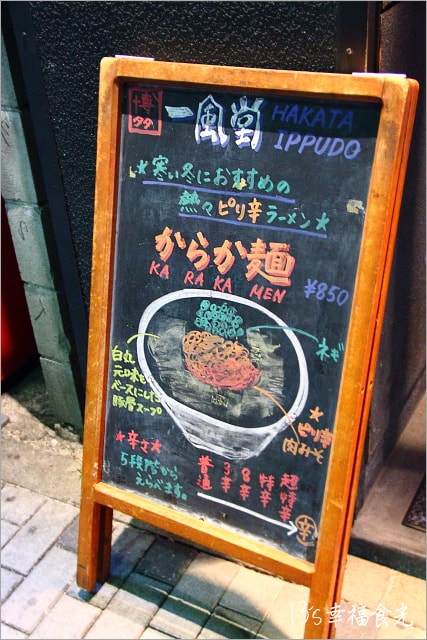 博多
一風堂
HAKATA
IPPUDO
★寒い冬におすすめの
熱々ピリ辛ラーメン★
からか麺
KA RA KA MEN
¥850
ネギ
白丸
元味を
ベースにした
豚骨スープ
★ピリ辛
肉みそ
★辛さ★
5段階から
えらべます。
普通
3辛
8辛
特辛
超特辛
辛
1%幸福食光